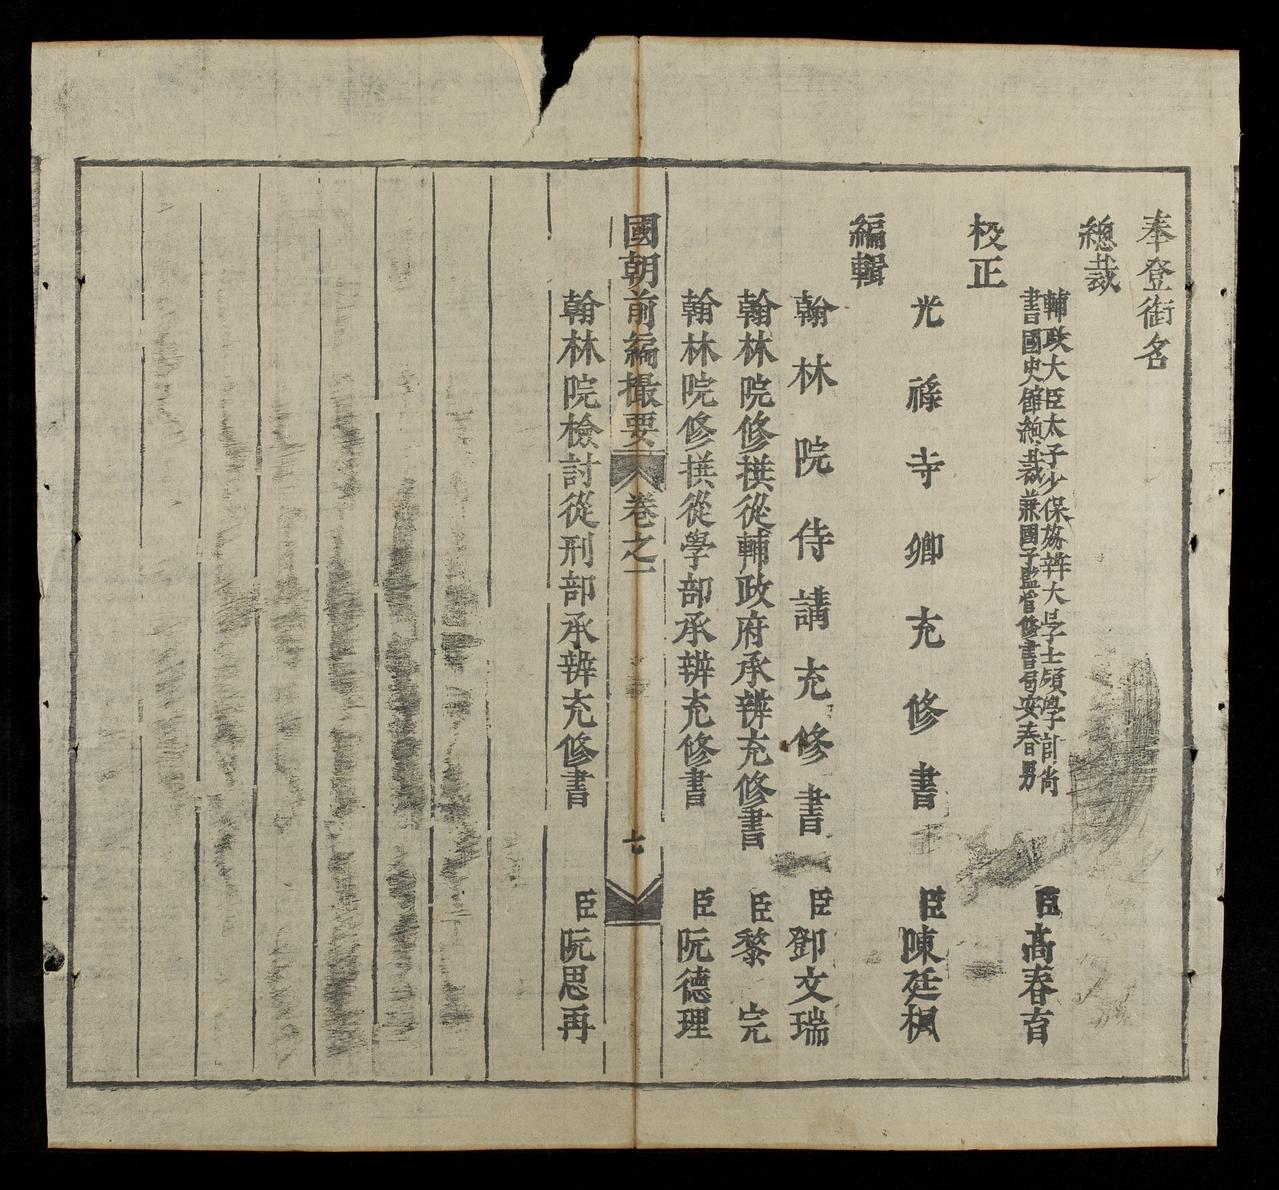 奉登銜名
總裁
輔政大臣太子少保協辨大學士領學計尚
書國史館總裁兼國子監管修書局安春男
臣高春育
校正
光祿寺卿充修書
臣陳廷楓
編輯
翰林院侍講充修書
臣鄧文瑞
翰林院修撰從輔政府承辨充修書
臣黎完
翰林院修撰從學部承辨充修書
臣阮德理
國朝前編撮要
卷之一
七
翰林院檢討從刑部承辨充修書
臣阮思再